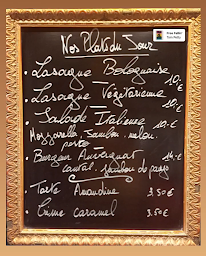 Nos Plats du Jour
• Lasagne Bolognaise 10.€
• Lasagne Végétarienne 10.€
• Salade Italienne 10.€
Mozzarella. Jambon. melon.
pesto
• Burger Auvergnat 14.€
cantal. Jambon de pays
• Tarte Amandine 3.50€
• Crème caramel 3.50€